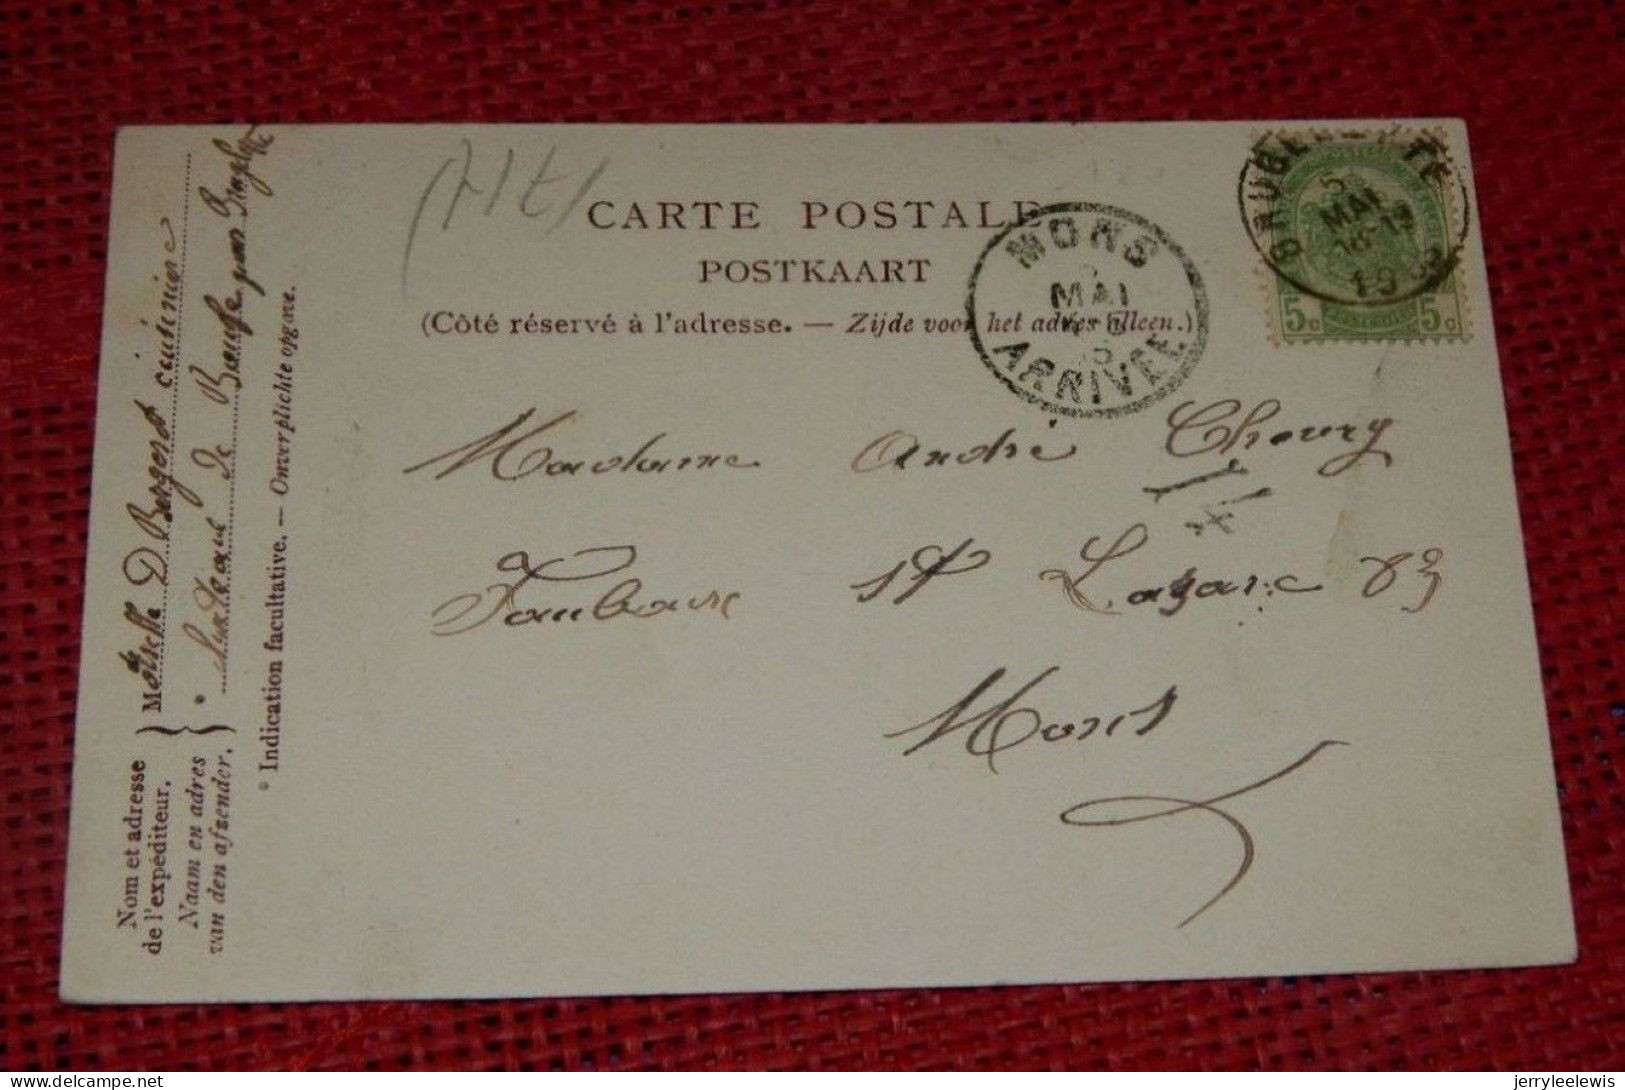 CARTE POSTALE
POSTKAART
(Côté réservé à l'adresse. — Zijde voor het adres alleen.)
MONS
MAI
ARRIVÉE
5
MAI
19
5c 5c
Madame André
Faubourg St Lazare 83
Mons
14
Nom et adresse
de l'expéditeur.
Naam en adres
van den afzender.
Moiselle D cuisinière
Château de par
* Indication facultative. — Onverplichte opgave.
jerryleelewis